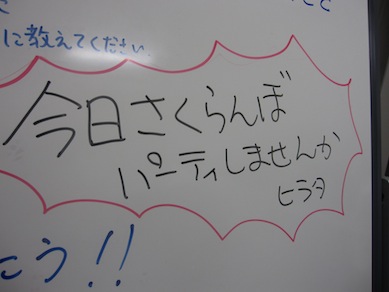 に教えてください
今日さくらんぼ
パーティしませんか
ヒラタ
こう!!